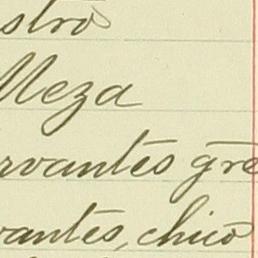 stro
Meza
rvantes gre
vantes, chico